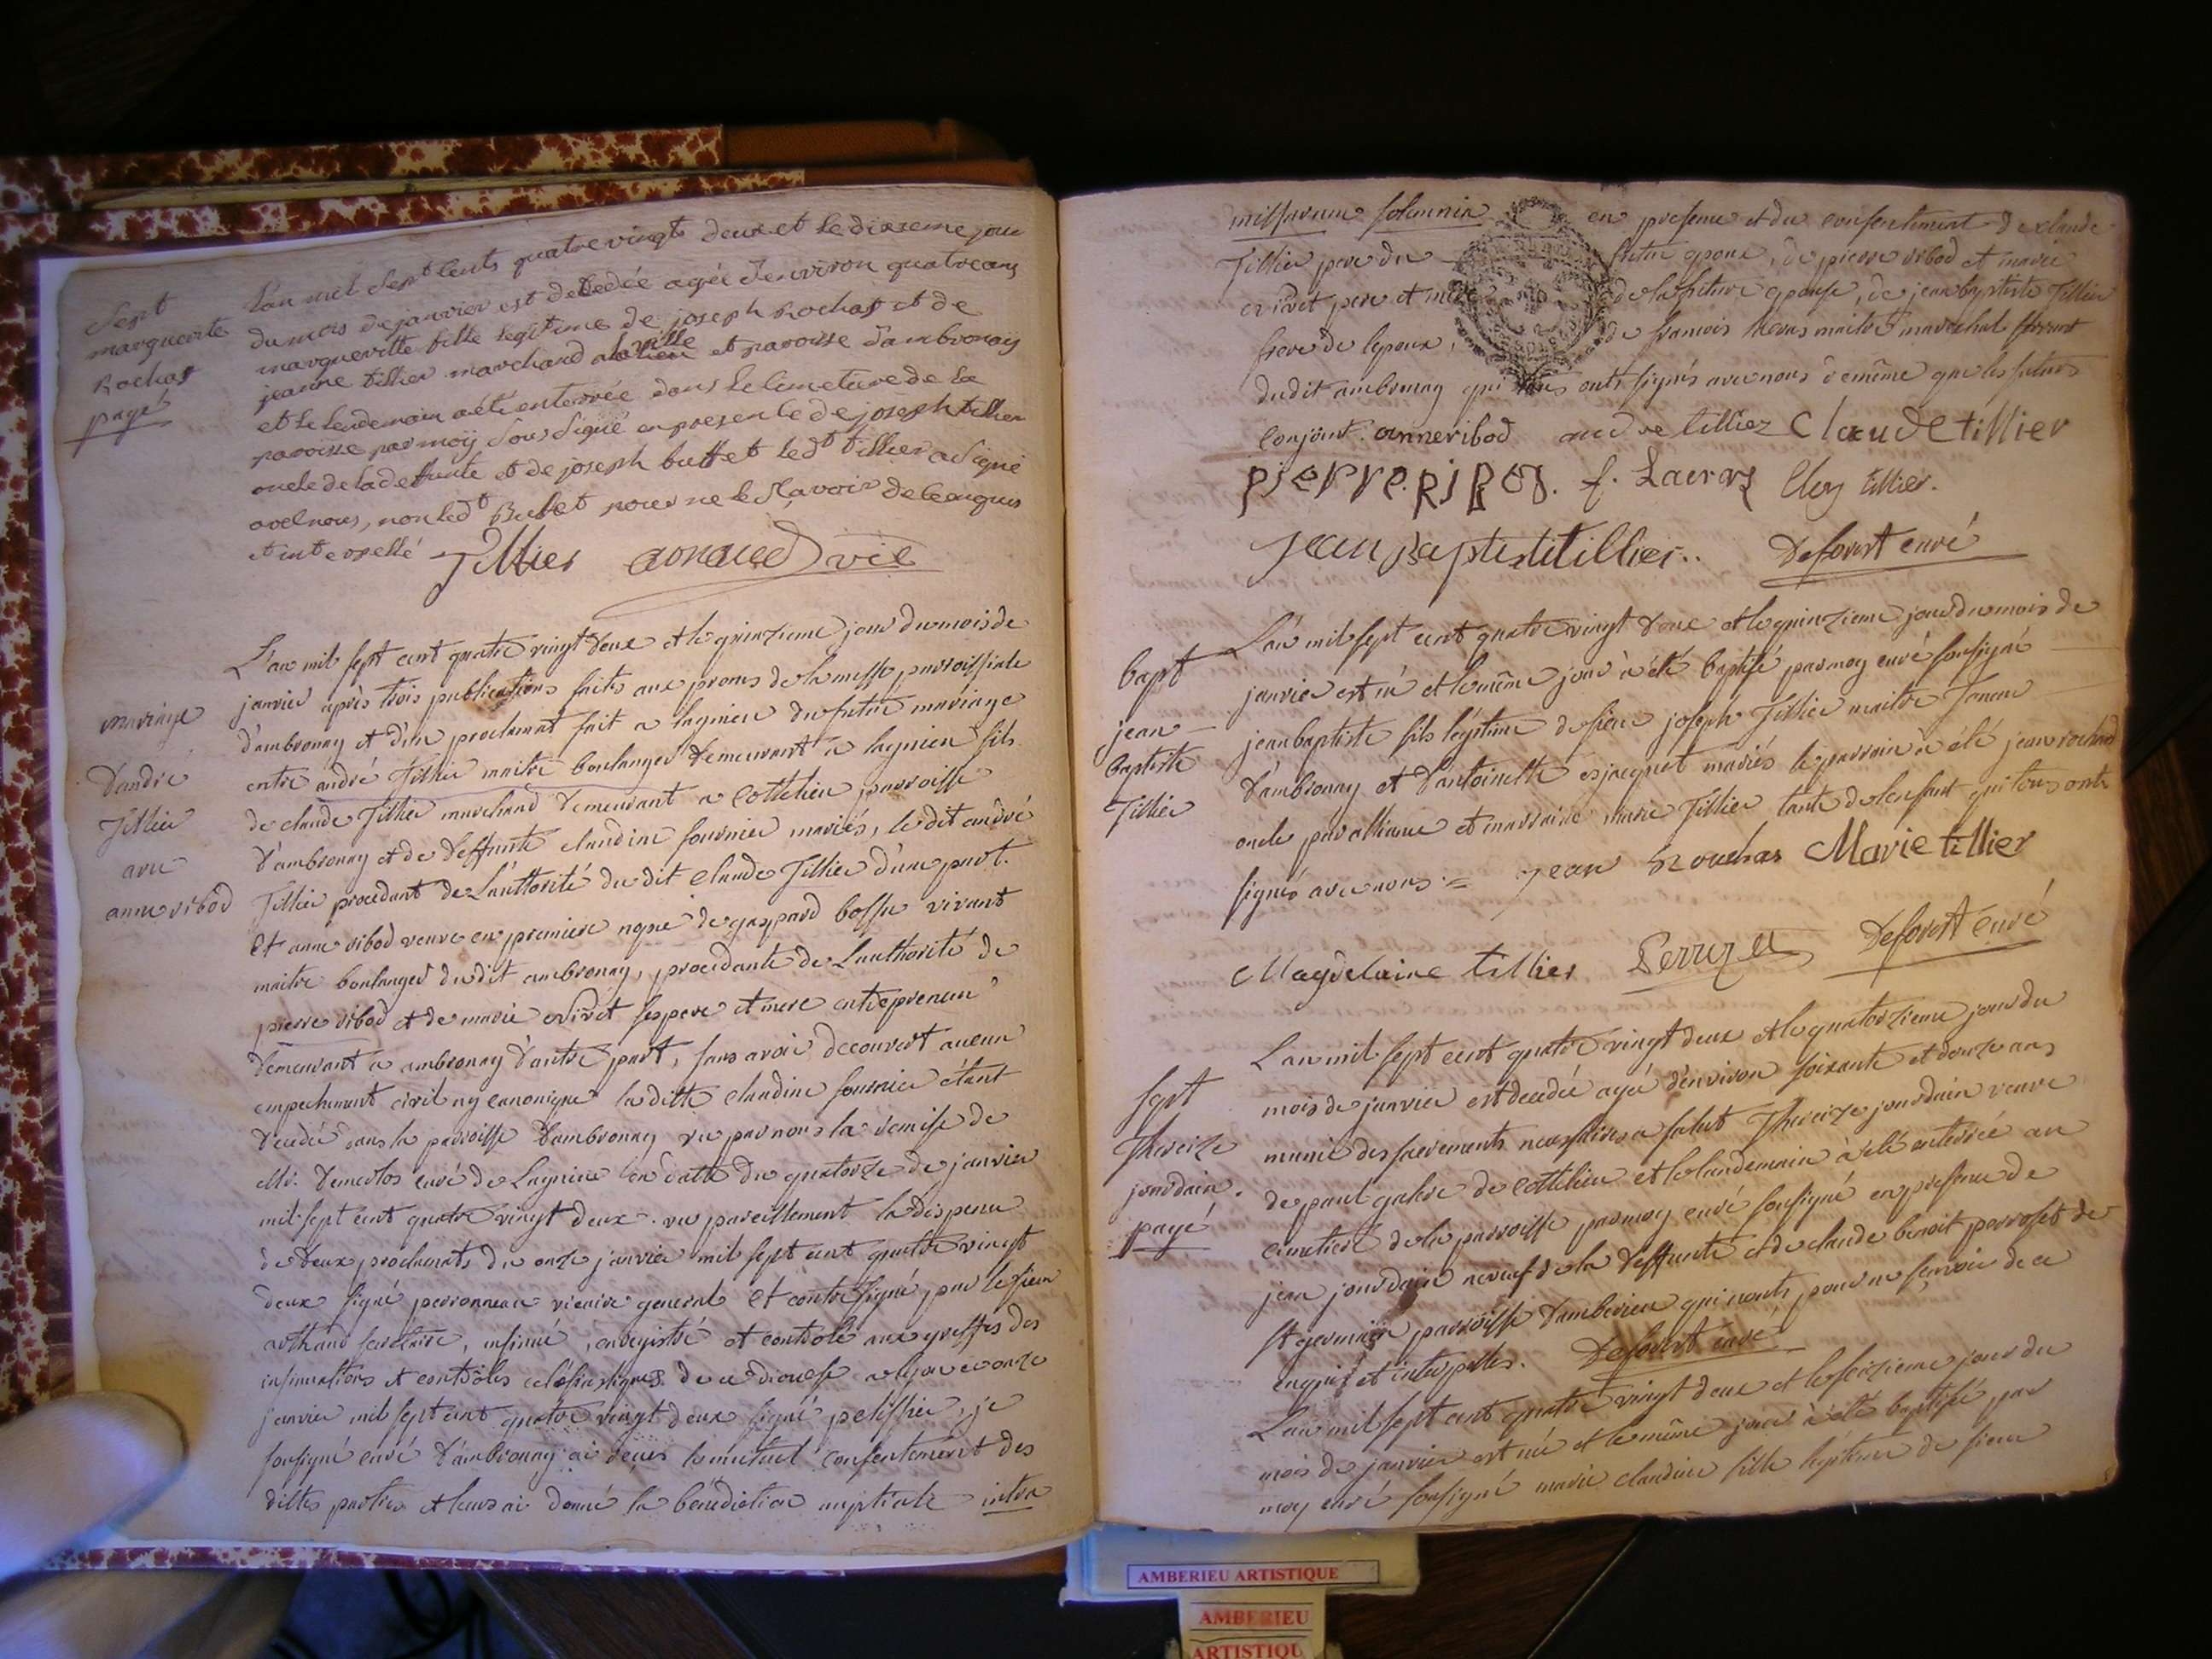 Sept
marguerite
Rochas
payé
L'an mil sept cents quatre vingts deux et le dixieme jour
du mois de janvier est decedée agée d'environ quatre ans
margueritte fille legitime de joseph Rochas et de
jeanne tillier marchand a la ville et paroisse d'ambronay
et le lendemain a été enterrée dans le cimetiere de la
paroisse par moÿ sous signé en presence de joseph tillier
oncle de la deffunte et de joseph buttet led.t tillier a signé
avec nous, non led.t Buttet pour ne le sçavoir de ce enquis
et interpellé Tillier arnaud vic
mariage
d'andré
Tillier
avec
anne ribod
L'an mil sept cent quatre vingt deux et le quinzieme jour du mois de
janvier après trois publications faites aux prones de la messe parroissiale
d'ambronay et d'un proclamat fait a lagnieu du futur mariage
entre andré Tillier maitre boulanger demeurant a lagnieu fils
de claude Tillier marchand demeurant a Cottelieu parroisse
d'ambronay et de deffunte claudine fournier mariés, le dit andré
Tillier procedant de L'authorité du dit Claude Tillier d'une part.
Et anne ribod veuve en premiere nopce de gaspard bossu vivant
maitre boulanger du dit ambronay, procedante de L'authorité de
pierre ribod et de marie crivet ses pere et mere entrepreneur
demeurant a ambronay d'autre part, sans avoir decouvert aucun
empechement civil ny canonique la ditte claudine fournier étant
decedée dans la parroisse d'ambronay vu par nous la remise de
Mr. curé de Lagnieu en datte du quatorze de janvier
mil sept cent quatre vingt deux. vu pareillement la dispense
de deux proclamats du onze janvier mil sept cent quatre vingt
deux signé perronneau vicaire general et contresigné par le sieur
secretaire, insinué, enregistré et controlé aux greffes des
insinuations et controles eclesiastiques de ce diocese a le onze
janvier mil sept cent quatre vingt deux signé pelissier, je
sousigné curé d'ambronay ai reçu le mutuel consentement des
dittes parties et leurs ai donné la bénédiction nuptiale intra
missarum solemnia en presence et du consentement de claude
Tillier pere du futur epoux, de pierre ribod et marie
crivet pere et mere de la future epouse, de jean baptiste Tillier
frere de l'epoux, de francois Lacras maitre marechal ferrant
du dit ambronay qui tous onts signés avec nous de même que les futurs
conjoint. anne ribod andre tillier Claude tillier
pierre. RIBOD. f. Lacras Cloy tillier.
jean Baptiste tillier.. Deforest curé
bapt
jean
baptiste
Tillier
L'an mil sept cent quatre vingt deux et le quinzieme jour du mois de
janvier est né et le même jour a été baptisé par moy curé sousigné
jean baptiste fils légitime de sieur joseph Tillier maitre
d'ambronay et d'antoinette mariés le parrain a été jean rochas
oncle par alliance et marraine marie Tillier tante de l'enfant qui tous onts
signés avec nous.= jean Rouchas Marie tillier
Magdelaine tillier Deforest curé
Sept
Thereize
jourdain.
payé
L'an mil sept cent quatre vingt deux et le quatorzieme jour du
mois de janvier est decedée agée d'environ soixante et douze ans
munie des sacrements necessaires a salut Thereize jourdain veuve
de paul de Cottelieu et le landemain a été enterrée au
cimetiere de la parroisse par moy curé sousigné en presence de
jean jourdain neveuf de la deffunte et de claude benoit perroset de
St germain parroisse d'amberieu qui n'onts pour ne sçavoir de ce
enquis et interpellés. Deforest curé
L'an mil sept cent quatre vingt deux et le seizieme jour du
mois de janvier est née et le même jour a été baptisé par
moy curé sousigné marie claudine fille legitime de sieur
AMBERIEU ARTISTIQUE
AMBERIEU
ARTISTIQU